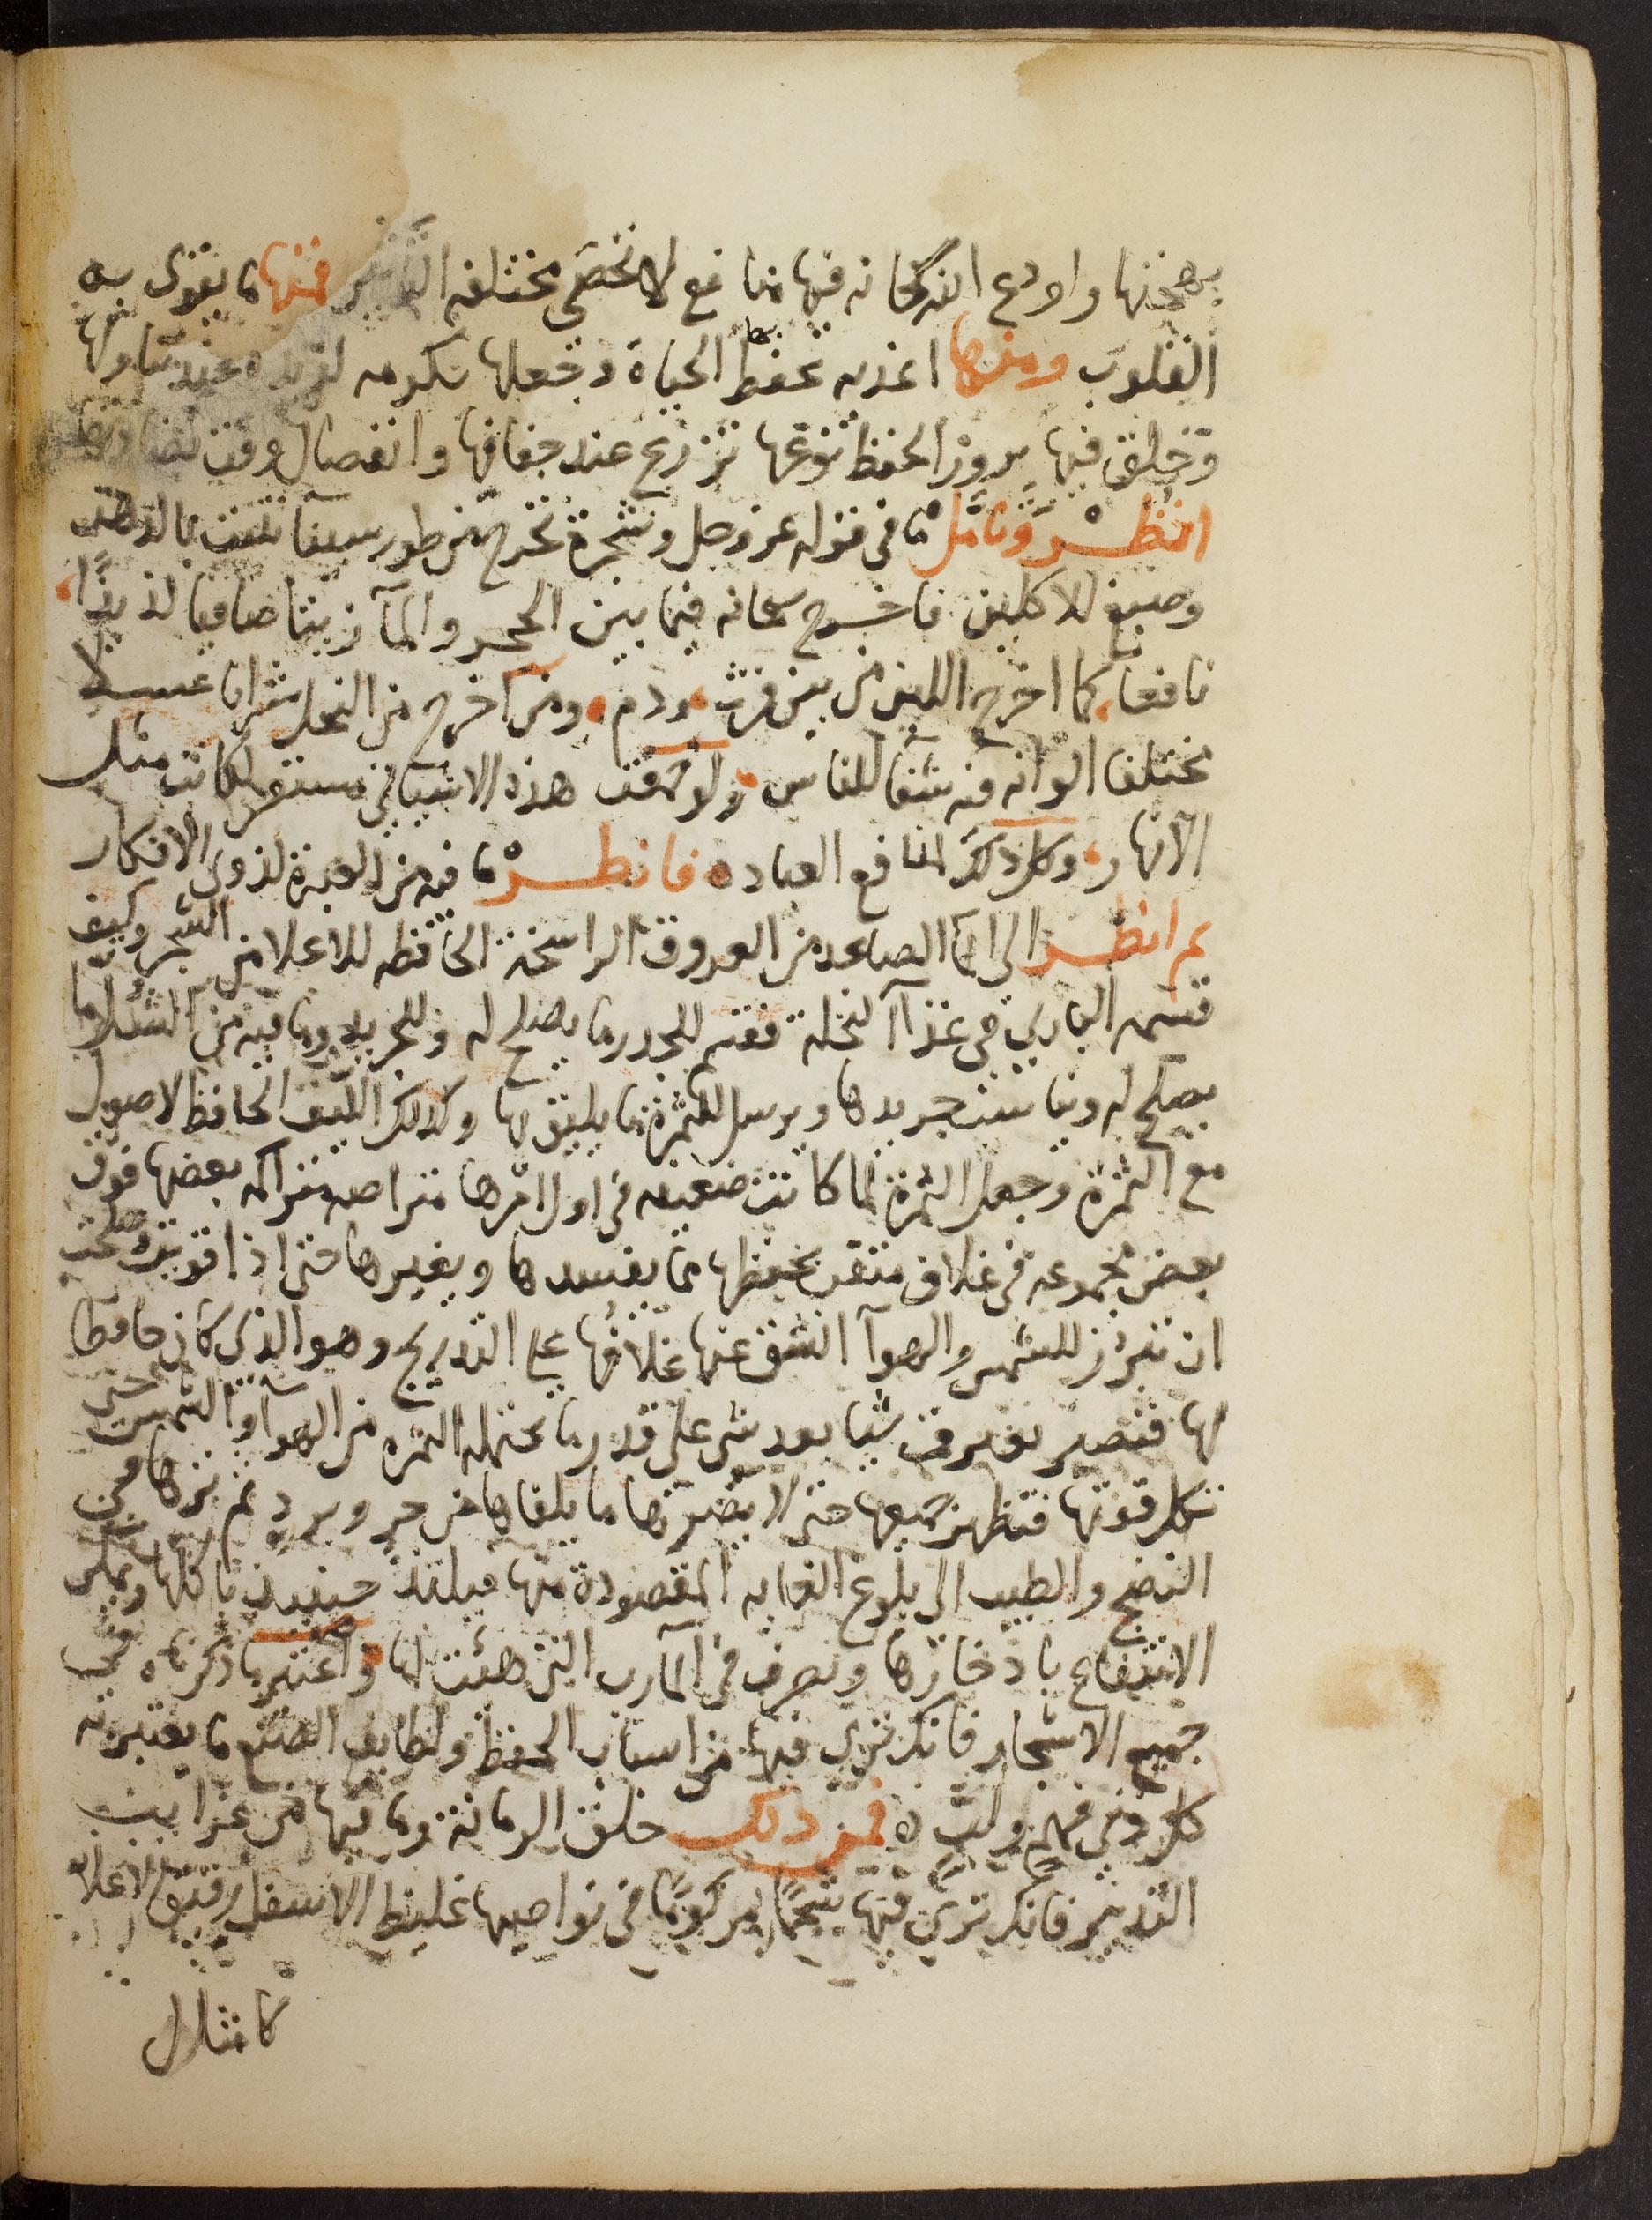 بهجتها واودع الله سبحانه فيها منافع لا تحصى مختلفة التأثير فمنها ما يقوى به
القلوب ومنها اغذيه تحفظ بها الحياة وجعلها مكرمه لذيذه عند تناولها
وخلق فيها بزور الحفظ نوعها تزرع عند جفافها وانفصال وقت نضارتها
انظر وتأمل ما في قوله عز وجل وشجرة تخرج من طور سينا تنبت بالدهن
وصبغ للاكلين فاخرج سبحانه فيما بين الحجر والمآ زيتا صافيا لذيذا
نافعا كما اخرج اللبن من بين فرث ودم ومن اخرج من النحل شرابا عسلا
مختلفا الوانه فيه شفآ للناس ولو جمعت هذه الاشيا في مستقر لكانت مثل
الانهار وكل ذلك لمنافع العباد ه فانظر ما فيه من العبرة لذوى الافكار
ثم انظر الى المآ الصاعد من العروق الراسخة الحافظه للاعلا من الشجر وكيف
قسمه الباري في غذآ النخلة فقسم للجدر ما يصلح له وللجريد وما فيه من السُلا ما
يصلح له وينا سب جريدها ويرسل للثمرة ما يليق بها وكذلك الليف الحافظ لاصول
مع الثمرة وجعل الثمرة لما كانت ضعيفه في اول امرها متراصه متراكمه بعضها فوق
بعض مجموعه في غلاف متقن يحفظها مما يفسدها ويغيرها حتى اذا قويت وصلحت
ان تبرز للشمس والهوآ انشق عنها غلافها على التدريج وهو الذي كان حافظا
لها فتصير بغير شيا بعد شى على قدر ما تحتمله الثمره من الهوآ والشمس حتى
تكمل قوتها فتظهر جميعها حتى لا يضرها ما يلقاها من حر وبرد ثم تزها في
النضج والطيب الى بلوغ الغايه المقصودة منها فيلتذ حينيذ باكلها ويمكن
الانتفاع بادخارها وتصرف في المآرب التي هيئت لها واعتبر ما ذكرناه في
جميع الاشجار فانك ترى فيها من اسباب الحفظ ولطايف الصنع ما يعتبر به
كل ذى فهم ولب ه فمن ذلك خلق الرمانة وما فيها من غرايب
التدبير فانك ترى فيها شحما مركوما في نواحيها غليظ الاسفل رقيق الاعلا
كامثال